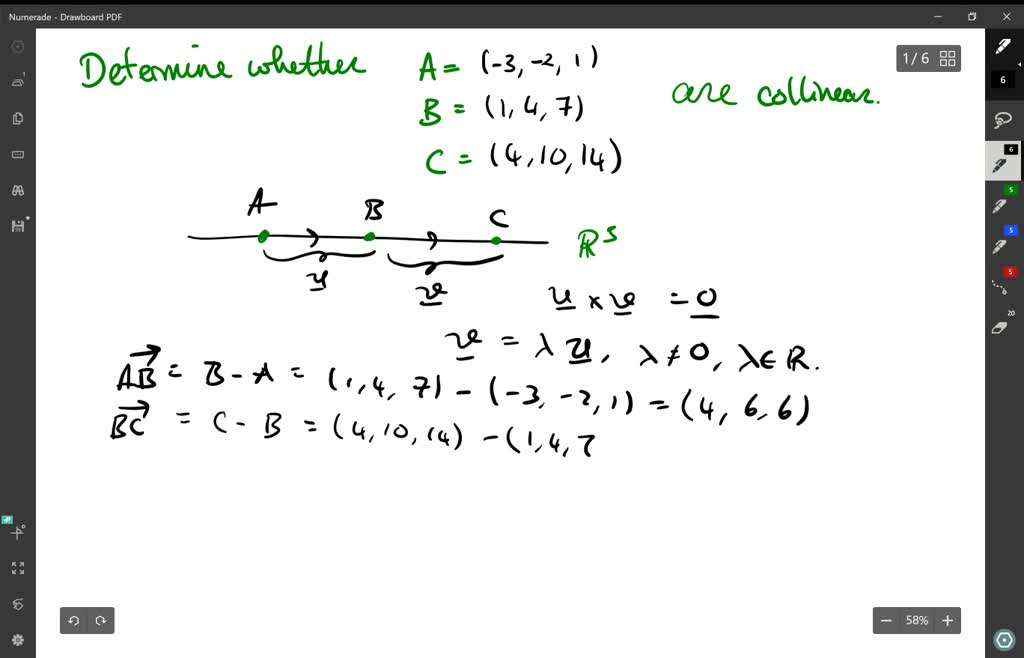 Numerade - Drawboard PDF
1 / 6
6
6
5
5
5
20
Determine whether A = (-3, -2, 1)
B = (1, 4, 7)
C = (4, 10, 14)
are collinear.
A B C
ℝ³
u v
u × v = 0
v = λ u, λ ≠ 0, λ ∈ ℝ.
AB = B - A = (1, 4, 7) - (-3, -2, 1) = (4, 6, 6)
BC = C - B = (4, 10, 14) - (1, 4, 7
58%